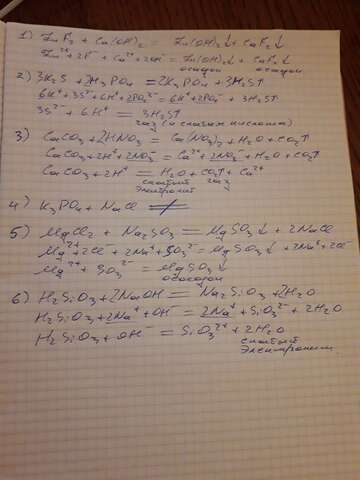 1) ZnF₂ + Ca(OH)₂ = Zn(OH)₂↓ + CaF₂↓
Zn²⁺ + 2F⁻ + Ca²⁺ + 2OH⁻ = Zn(OH)₂↓ + CaF₂↓
осадок осадок
2) 3K₂S + 2H₃PO₄ = 2K₃PO₄ + 3H₂S↑
6K⁺ + 3S²⁻ + 6H⁺ + 2PO₄³⁻ = 6K⁺ + 2PO₄³⁻ + 3H₂S↑
3S²⁻ + 6H⁺ = 3H₂S↑
газ (и слабая кислота)
3) CaCO₃ + 2HNO₃ = Ca(NO₃)₂ + H₂O + CO₂↑
CaCO₃ + 2H⁺ + 2NO₃⁻ = Ca²⁺ + 2NO₃⁻ + H₂O + CO₂↑
CaCO₃ + 2H⁺ = H₂O + CO₂↑ + Ca²⁺
слабый газ
электролит
4) K₃PO₄ + NaCl ≠
5) MgCl₂ + Na₂SO₃ = MgSO₃↓ + 2NaCl
Mg²⁺ + 2Cl⁻ + 2Na⁺ + SO₃²⁻ = MgSO₃↓ + 2Na⁺ + 2Cl⁻
Mg²⁺ + SO₃²⁻ = MgSO₃↓
осадок
6) H₂SiO₃ + 2NaOH = Na₂SiO₃ + 2H₂O
H₂SiO₃ + 2Na⁺ + OH⁻ = 2Na⁺ + SiO₃²⁻ + 2H₂O
H₂SiO₃ + OH⁻ = SiO₃²⁻ + 2H₂O
слабый
электролит